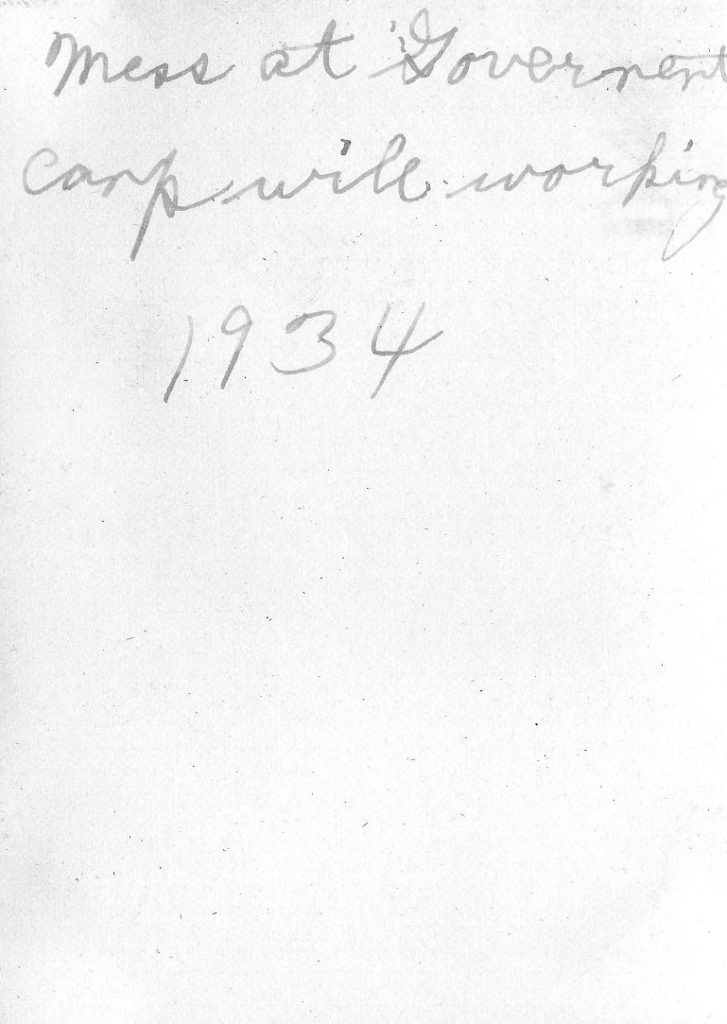 Mess at Goverment
camp wile working
1934